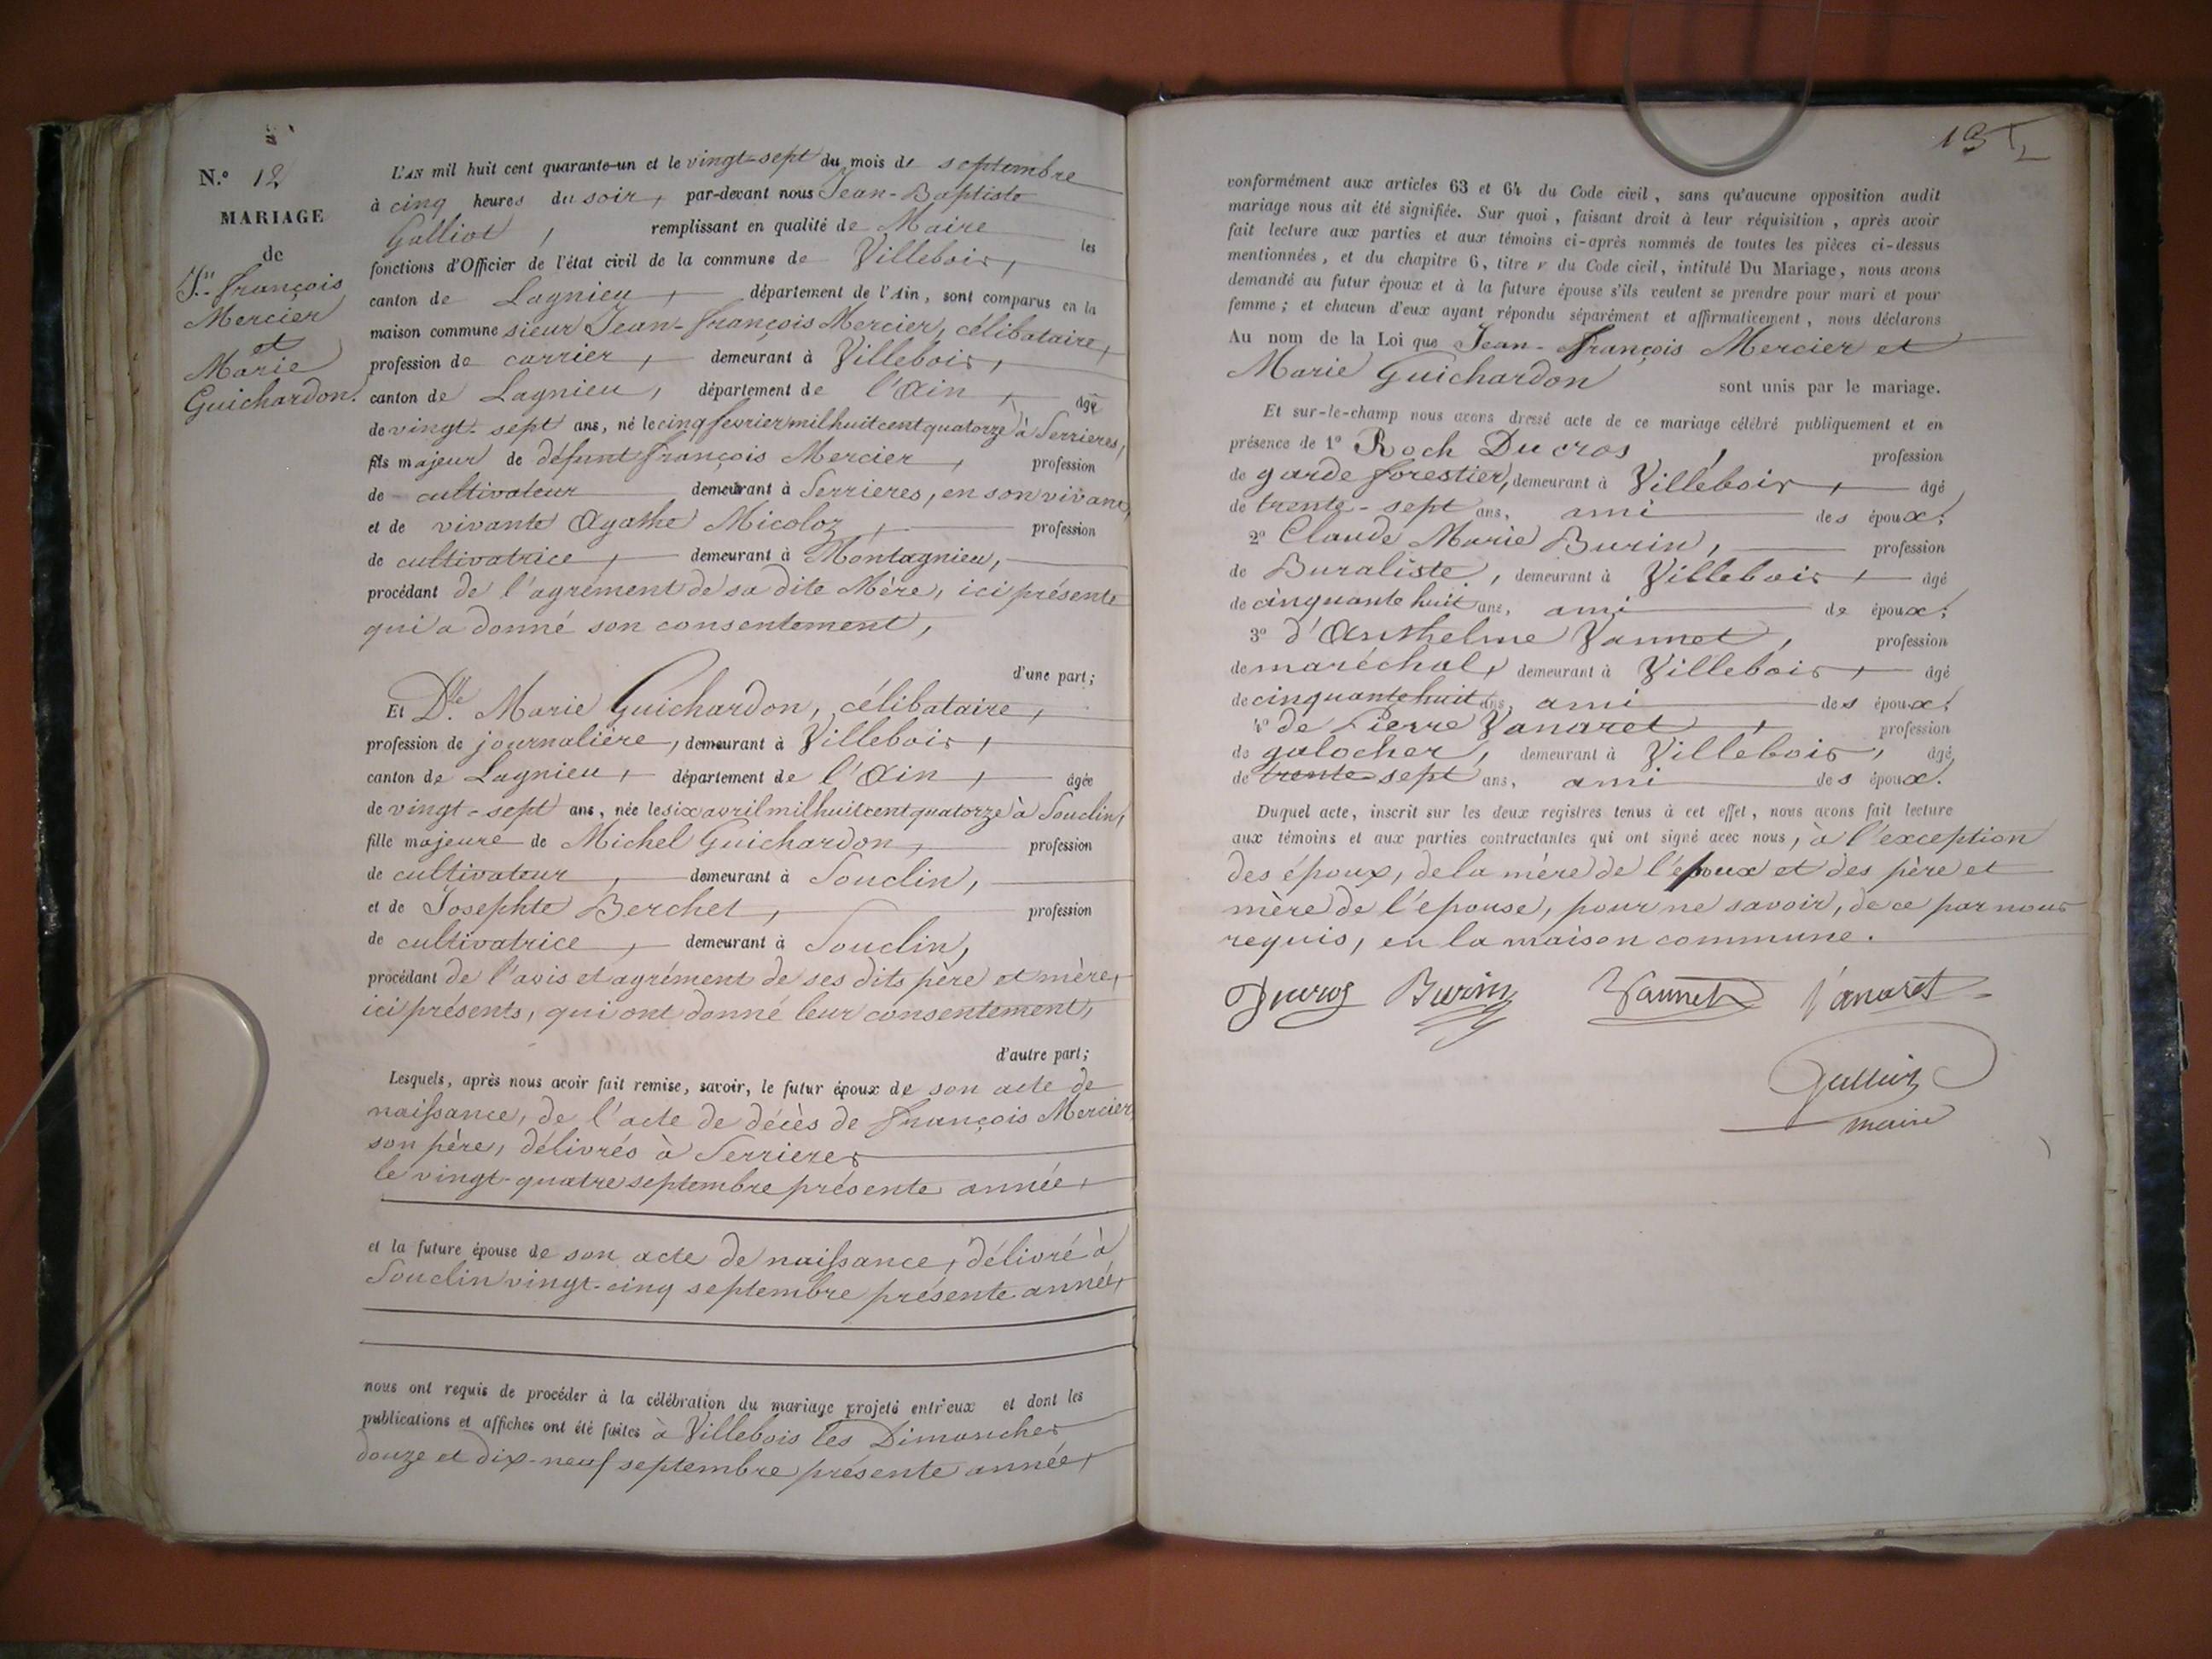 N.° 12
MARIAGE
de
Jn François
Mercier
et
Marie
Guichardon.
L'AN mil huit cent quarante-un et le vingt-sept du mois de septembre
à cinq heures du soir, par-devant nous Jean-Baptiste
Galliot, remplissant en qualité de Maire les
fonctions d'Officier de l'état civil de la commune de Villebois,
canton de Lagnieu, département de l'Ain, sont comparus en la
maison commune sieur Jean-François Mercier, célibataire,
profession de carrier, demeurant à Villebois,
canton de Lagnieu, département de l'Ain, âgé
de vingt-sept ans, né le cinq fevrier mil huit cent quatorze à Serrieres,
fils majeur de défunt François Mercier, profession
de cultivateur demeurant à Serrieres, en son vivant,
et de vivante Agathe Micoloz, profession
de cultivatrice, demeurant à Montagnieu,
procédant de l'agrément de sa dite Mère, ici présente
qui a donné son consentement,
d'une part;
Et Dlle Marie Guichardon, célibataire,
profession de journalière, demeurant à Villebois,
canton de Lagnieu, département de l'Ain, âgée
de vingt-sept ans, née le six avril mil huit cent quatorze à Souclin,
fille majeure de Michel Guichardon, profession
de cultivateur, demeurant à Souclin,
et de Josephte Berchet, profession
de cultivatrice, demeurant à Souclin,
procédant de l'avis et agrément de ses dits père et mère,
ici présents, qui ont donné leur consentement,
d'autre part;
Lesquels, après nous avoir fait remise, savoir, le futur époux de son acte de
naissance, de l'acte de décès de François Mercier
son père, délivrés à Serrieres
le vingt-quatre septembre présente année,
et la future épouse de son acte de naissance, délivré à
Souclin vingt-cinq septembre présente année,
nous ont requis de procéder à la célébration du mariage projeté entr'eux et dont les
publications et affiches ont été faites à Villebois les Dimanches
douze et dix-neuf septembre présente année,
conformément aux articles 63 et 64 du Code civil, sans qu'aucune opposition audit
mariage nous ait été signifiée. Sur quoi, faisant droit à leur réquisition, après avoir
fait lecture aux parties et aux témoins ci-après nommés de toutes les pièces ci-dessus
mentionnées, et du chapitre 6, titre v du Code civil, intitulé Du Mariage, nous avons
demandé au futur époux et à la future épouse s'ils veulent se prendre pour mari et pour
femme; et chacun d'eux ayant répondu séparément et affirmativement, nous déclarons
Au nom de la Loi que Jean-François Mercier et
Marie Guichardon sont unis par le mariage.
Et sur-le-champ nous avons dressé acte de ce mariage célébré publiquement et en
présence de 1° Roch Ducros, profession
de garde forestier, demeurant à Villebois, âgé
de trente-sept ans, ami des époux;
2° Claude Marie Burin, profession
de Buraliste, demeurant à Villebois, âgé
de cinquante huit ans, ami de époux;
3° d'Anthelme Vannet, profession
de maréchal, demeurant à Villebois, âgé
de cinquante huit ans, ami des époux;
4° de Pierre Vanaret, profession
de galocher, demeurant à Villebois, âgé
de trente-sept ans, ami des époux.
Duquel acte, inscrit sur les deux registres tenus à cet effet, nous avons fait lecture
aux témoins et aux parties contractantes qui ont signé avec nous, à l'exception
des époux, de la mère de l'époux et des père et
mère de l'épouse, pour ne savoir, de ce par nous
requis, en la maison commune.
Ducros Burin Vannet Vanaret
Galliot
maire